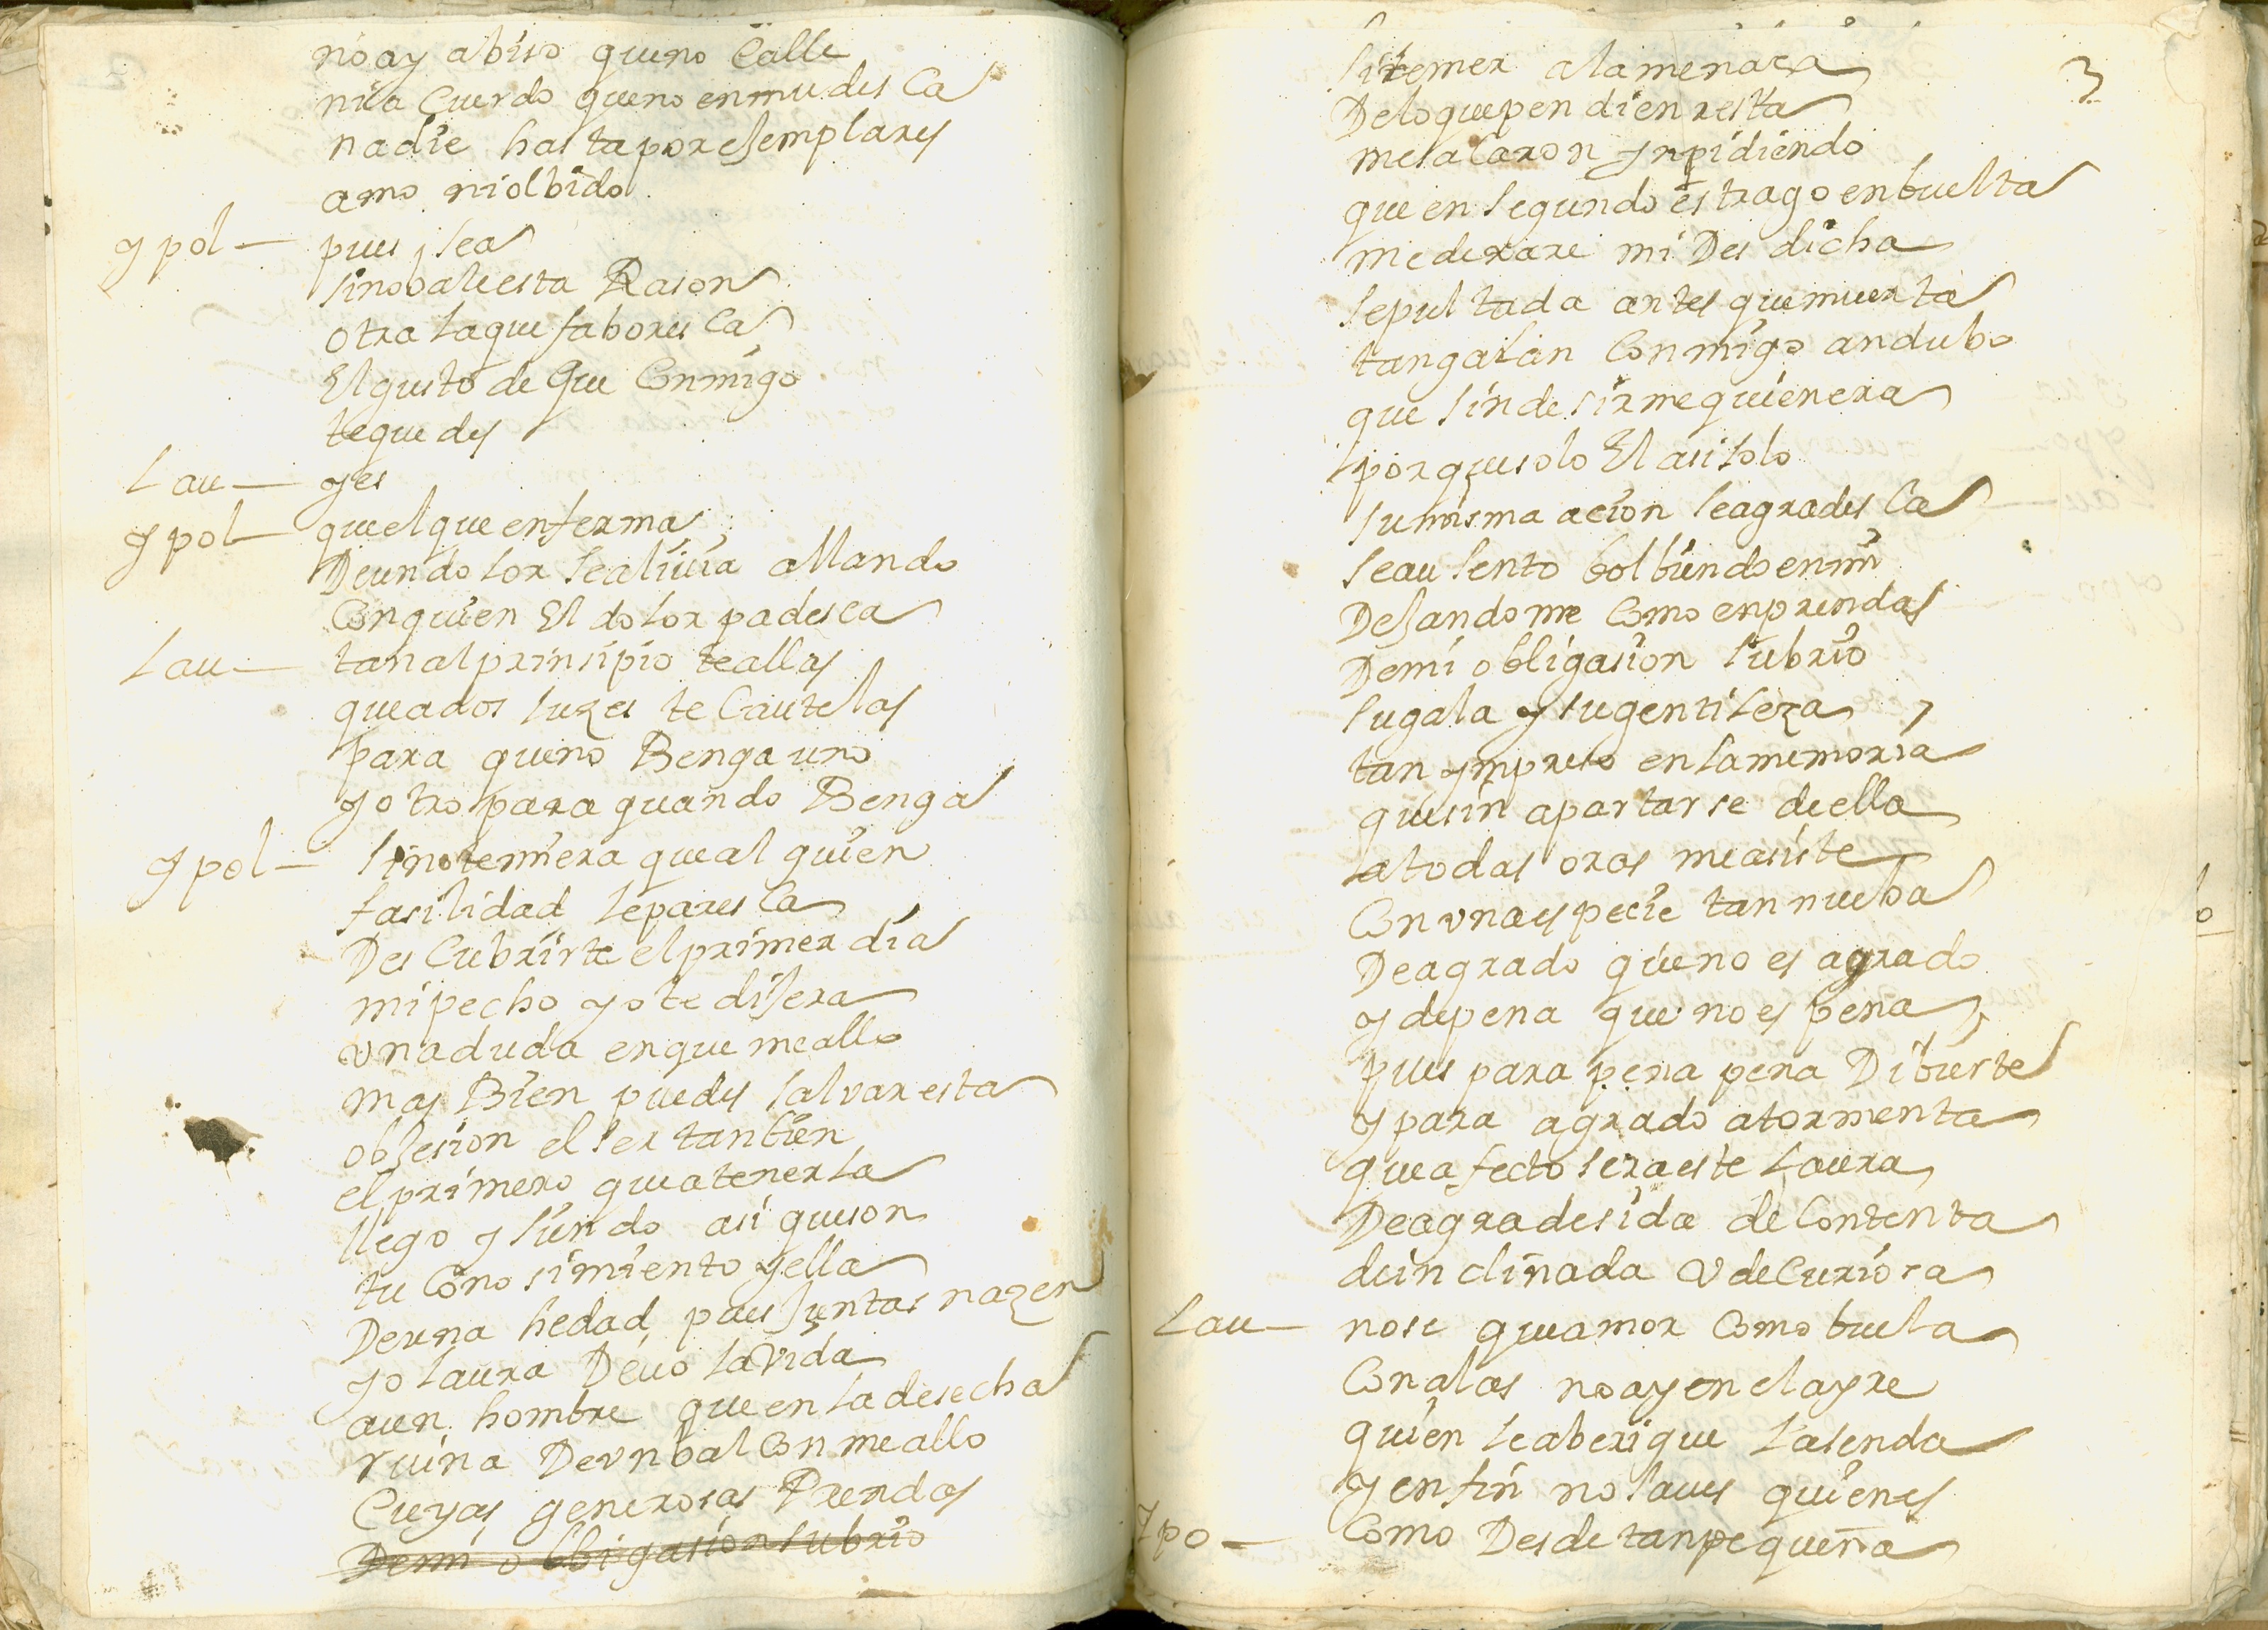 no ay abiso que no Calle
ni a Cuerdo que no enmudes Ca
nadie hasta por esemplares
amo ni olbido
ypol— pues sea
si no bale esta Rason
otra la que fabores Ca
El gusto de Que Conmigo
te quedes
Lau— y es
ypol— que el que enferma
De un dolor se aliuia allando
Con quien El dolor padesca
Lau— tan al prinsipio te allas
que a dos luzes te Cautelas
para que no Benga uno
y otro para quando Benga
ypol— si no temiera que al guien
fasilidad le pares Ca
Des Cubrirte el primer dia
mi pecho yo te disera
vna duda en que me allo
mas Bien puedes salvar esta
obsesion el ser tanbien
el primero que a tenerla
llego y siendo asi que son
tu Cono simiento y ella
De una hedad pues Juntas nazen
yo laura Deuo la Vida
a un hombre que en la desecha
ruina De vn balcon me allo
Cuyas generosas Prendas
Demi obligasion su brio
3
si temer a la menasa
De lo que pendien resta
me sacaron ynpidiendo
que en segundo estrago enbuelta
me derare mi Des dicha
sepultada antes que muerta
tan galan Conmigo andubo
que sin desirme quien era
por que solo El asi solo
su misma acion se agrades Ca
se ausento bolbiendo en mi
Desandome Como en prendas
De mi obligasion su brio
su gala y su gentileza
tan ympreso en la memoria
que sin apartarse de ella
a todas oras me asiste
Con vna espesie tan nueba
De agrado que no es agrado
y de pena que no es pena
pues para pena pena Dibierte
y para agrado atormenta
que afecto sera este Laura
De agradesida de Contenta
de in clinada V de Curiosa
Lau— no se que amor Como buela
Con alas no ay en el ayre
quien le aberigue la senda
y en fin no saues quien es
Ypo— Como Desde tan pequeña